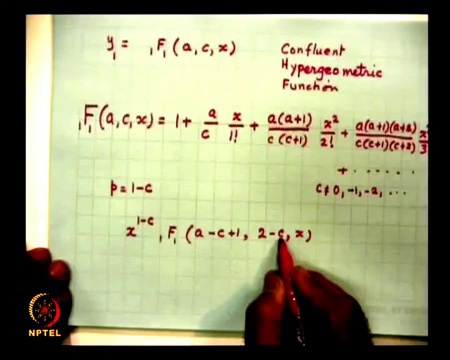 y₁ = ₁F₁ (a, c, x) Confluent
Hypergeometric
Function
₁F₁(a, c, x) = 1 + a/c x/1! + a(a+1)/c(c+1) x²/2! + a(a+1)(a+2)/c(c+1)(c+2) x³/3
+ ......
p = 1-c c ≠ 0, -1, -2, ...
x^(1-c) ₁F₁ (a-c+1, 2-c, x)
NPTEL